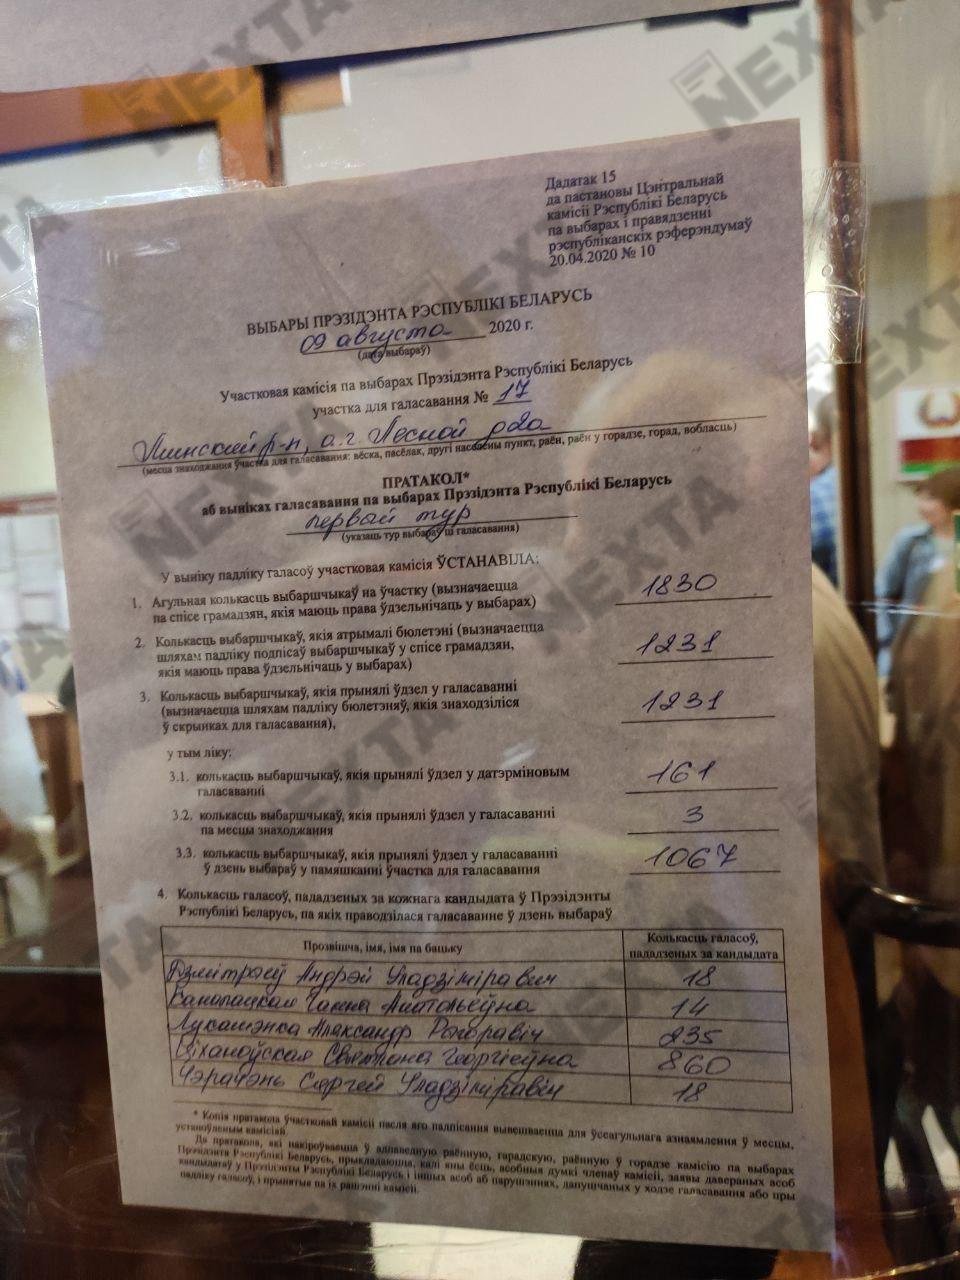 NEXTA
Дадатак 15
да пастановы Цэнтральнай
камісіі Рэспублікі Беларусь
па выбарах і правядзенні
рэспубліканскіх рэферэндумаў
20.04.2020 № 10
ВЫБАРЫ ПРЭЗІДЭНТА РЭСПУБЛІКІ БЕЛАРУСЬ
09 августа 2020 г.
(дата выбараў)
Участковая камісія па выбарах Прэзідэнта Рэспублікі Беларусь
участка для галасавання № 17
р-н, а.г. Лесной
(месца знаходжання ўчастка для галасавання: вёска, пасёлак, другі населены пункт, раён, раён у горадзе, горад, вобласць)
ПРАТАКОЛ*
аб выніках галасавання па выбарах Прэзідэнта Рэспублікі Беларусь
первый тур
(указаць тур выбараў ці галасавання)
У выніку падліку галасоў участковая камісія ЎСТАНАВІЛА:
1. Агульная колькасць выбаршчыкаў на ўчастку (вызначаецца
па спісе грамадзян, якія маюць права ўдзельнічаць у выбарах) 1830
2. Колькасць выбаршчыкаў, якія атрымалі бюлетэні (вызначаецца
шляхам падліку подпісаў выбаршчыкаў у спісе грамадзян,
якія маюць права ўдзельнічаць у выбарах) 1231
3. Колькасць выбаршчыкаў, якія прынялі ўдзел у галасаванні
(вызначаецца шляхам падліку бюлетэняў, якія знаходзіліся
ў скрынках для галасавання), 1231
у тым ліку:
3.1. колькасць выбаршчыкаў, якія прынялі ўдзел у датэрміновым
галасаванні 161
3.2. колькасць выбаршчыкаў, якія прынялі ўдзел у галасаванні
па месцы знаходжання 3
3.3. колькасць выбаршчыкаў, якія прынялі ўдзел у галасаванні
ў дзень выбараў у памяшканні ўчастка для галасавання 1067
4. Колькасць галасоў, пададзеных за кожнага кандыдата ў Прэзідэнты
Рэспублікі Беларусь, па якіх праводзілася галасаванне ў дзень выбараў
Прозвішча, імя, імя па бацьку Колькасць галасоў,
пададзеных за кандыдата
Дзмітрыеў Андрэй Уладзіміравіч 18
Канапацкая Ганна Анатольеўна 14
Лукашэнка Аляксандр Рыгоравіч 235
Ціханоўская Святлана Георгіеўна 860
Чэрачэнь Сяргей Уладзіміравіч 18
* Копія пратакола ўчастковай камісіі пасля яго падпісання вывешваецца для ўсеагульнага азнаямлення ў месцы,
устаноўленым камісіяй.
Да пратакола, які накіроўваецца ў адпаведную раённую, гарадскую, раённую ў горадзе камісію па выбарах
Прэзідэнта Рэспублікі Беларусь, прыкладаюцца, калі яны ёсць, асобныя думкі членаў камісіі, заявы давераных асоб
кандыдатаў у Прэзідэнты Рэспублікі Беларусь і іншых асоб аб парушэннях, дапушчаных у ходзе галасавання або пры
падліку галасоў, і прынятыя па іх рашэнні камісіі.